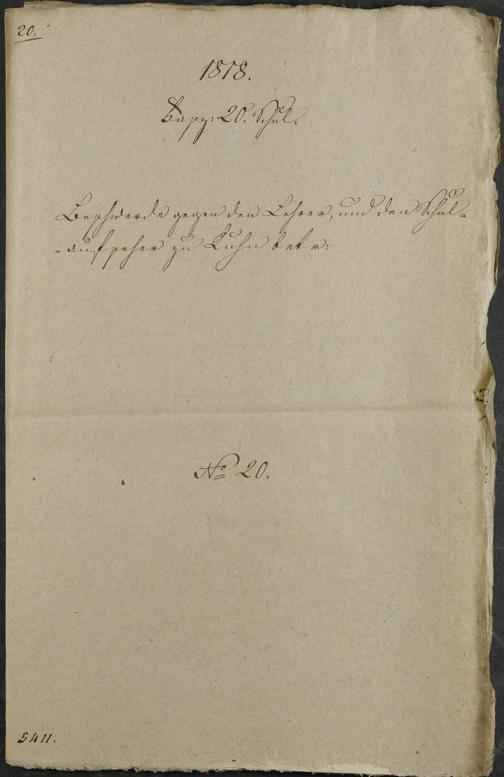 20.
1818.
Kapp: 20. Schul.
Beschwerde gegen den Lehrer, und den Schul-
-aufseher zu Kuhn betr:
No 20.
5411.